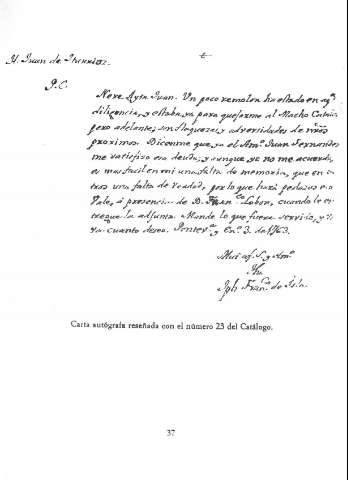 D. Juan de
P.C.
Un poco remolon ha estado en
diligencia, y estaba ya para quejarme al Macho
pero adelante, son flaquezas, y adversidades de nros
proximos. Diceme que ya el Amº Juan Fernandez
me satisfizo esa deuda; y aunque yo no me acuerdo,
es mas facil en mi una falta de memoria, que en
tros una falta de verdad, por lo que hará pedazos
Vale, á presencia de D. Lobon, cuando le
la adjunta. Mande lo que fuere servido, y
cuanto desea. y Enº 3. de 1763.
y Amº
Jhs
Jph Franco de Isla.
Carta autógrafa reseñada con el número 23 del Catálogo.
37